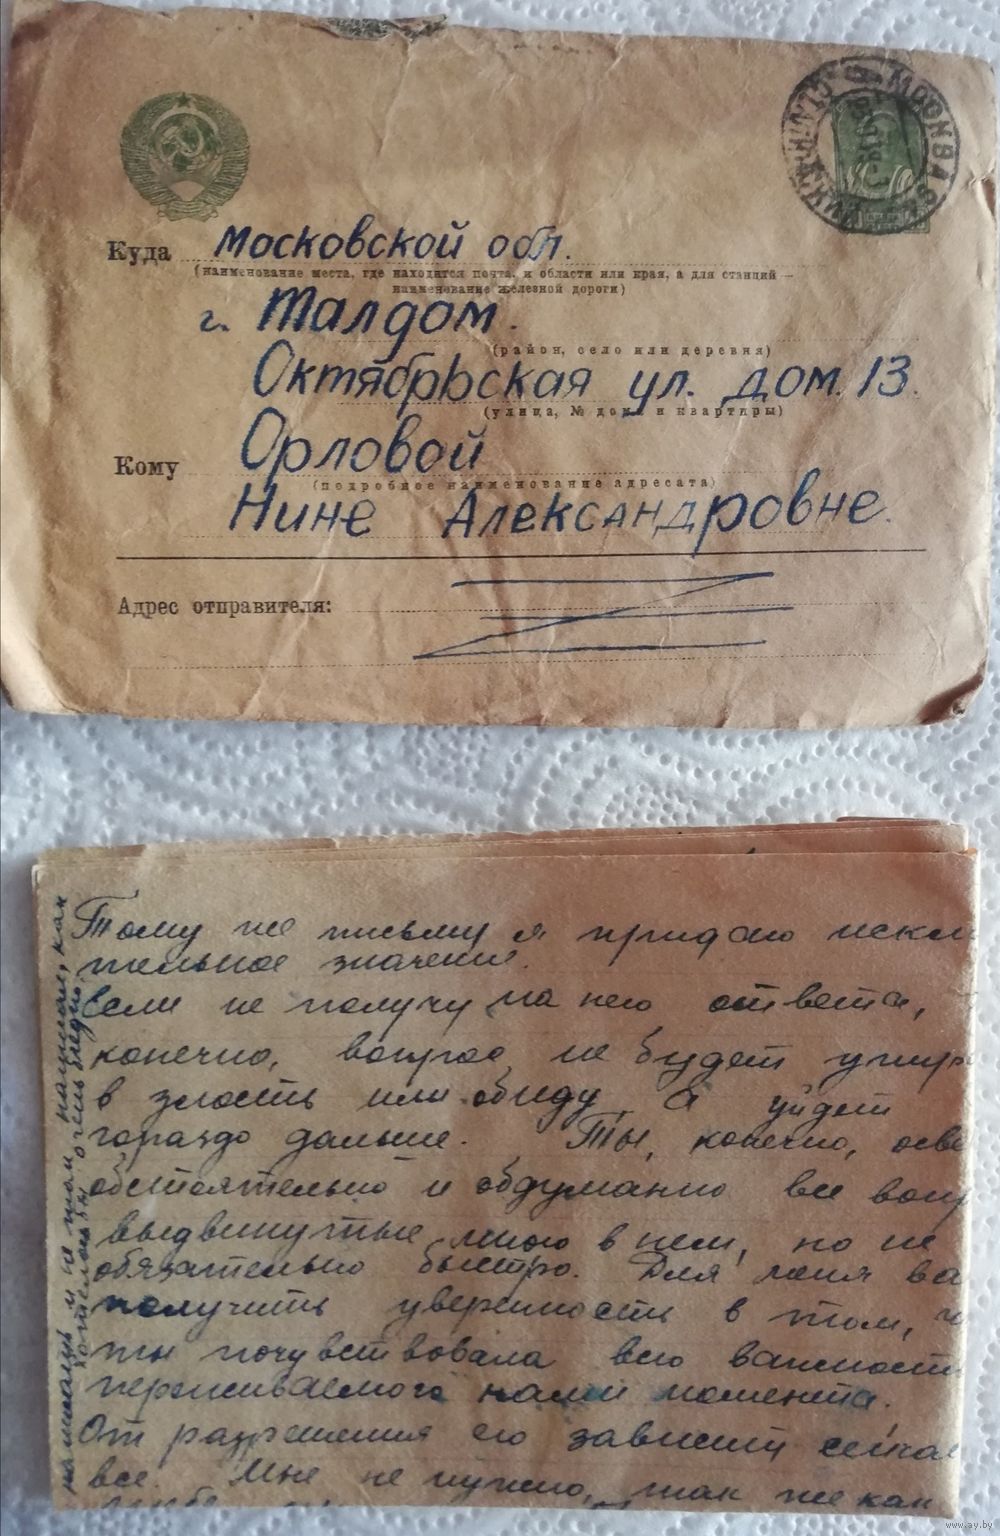 МОСКВА
Куда Московской обл.
(наименование места, где находится почта, и области или края, а для станций —
наименование железной дороги)
г. Талдом.
(район, село или деревня)
Октябрьская ул. дом. 13.
(улица, № дома и квартиры)
Кому Орловой
(подробное наименование адресата)
Нине Александровне.
Адрес отправителя:
Тому же письму я придаю искл
тельное значение.
Если не получу на него ответа,
конечно, вопрос не будет упир
в злость или обиду, а уйдет
гораздо дальше. Ты, конечно, осве
обстоятельно и обдуманно все вопр
выдвинутые мною в нем, но не
обязательно быстро. Для меня ва
получить уверенность в том, ч
ты почувствовала всю важност
переживаемого нами момента.
От разрешения его зависит сейча
все. Мне не нужно, так же как
написал, как
хотелось бы очень бледно.
www.ay.by